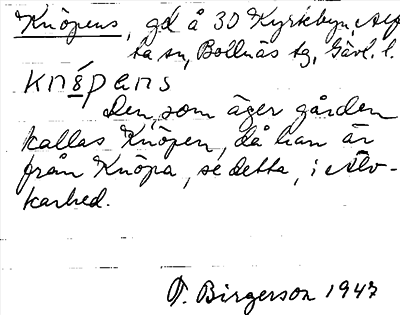 Knöpens, gd å 30 Kyrkbyn, Alf
ta sn, Bollnäs tg, Gävl. l.
knöpens
Den, som äger gården
kallas Knöpen, då han är
från Knöpa, se detta, i Alv-
karhed.
T. Birgerson 1947